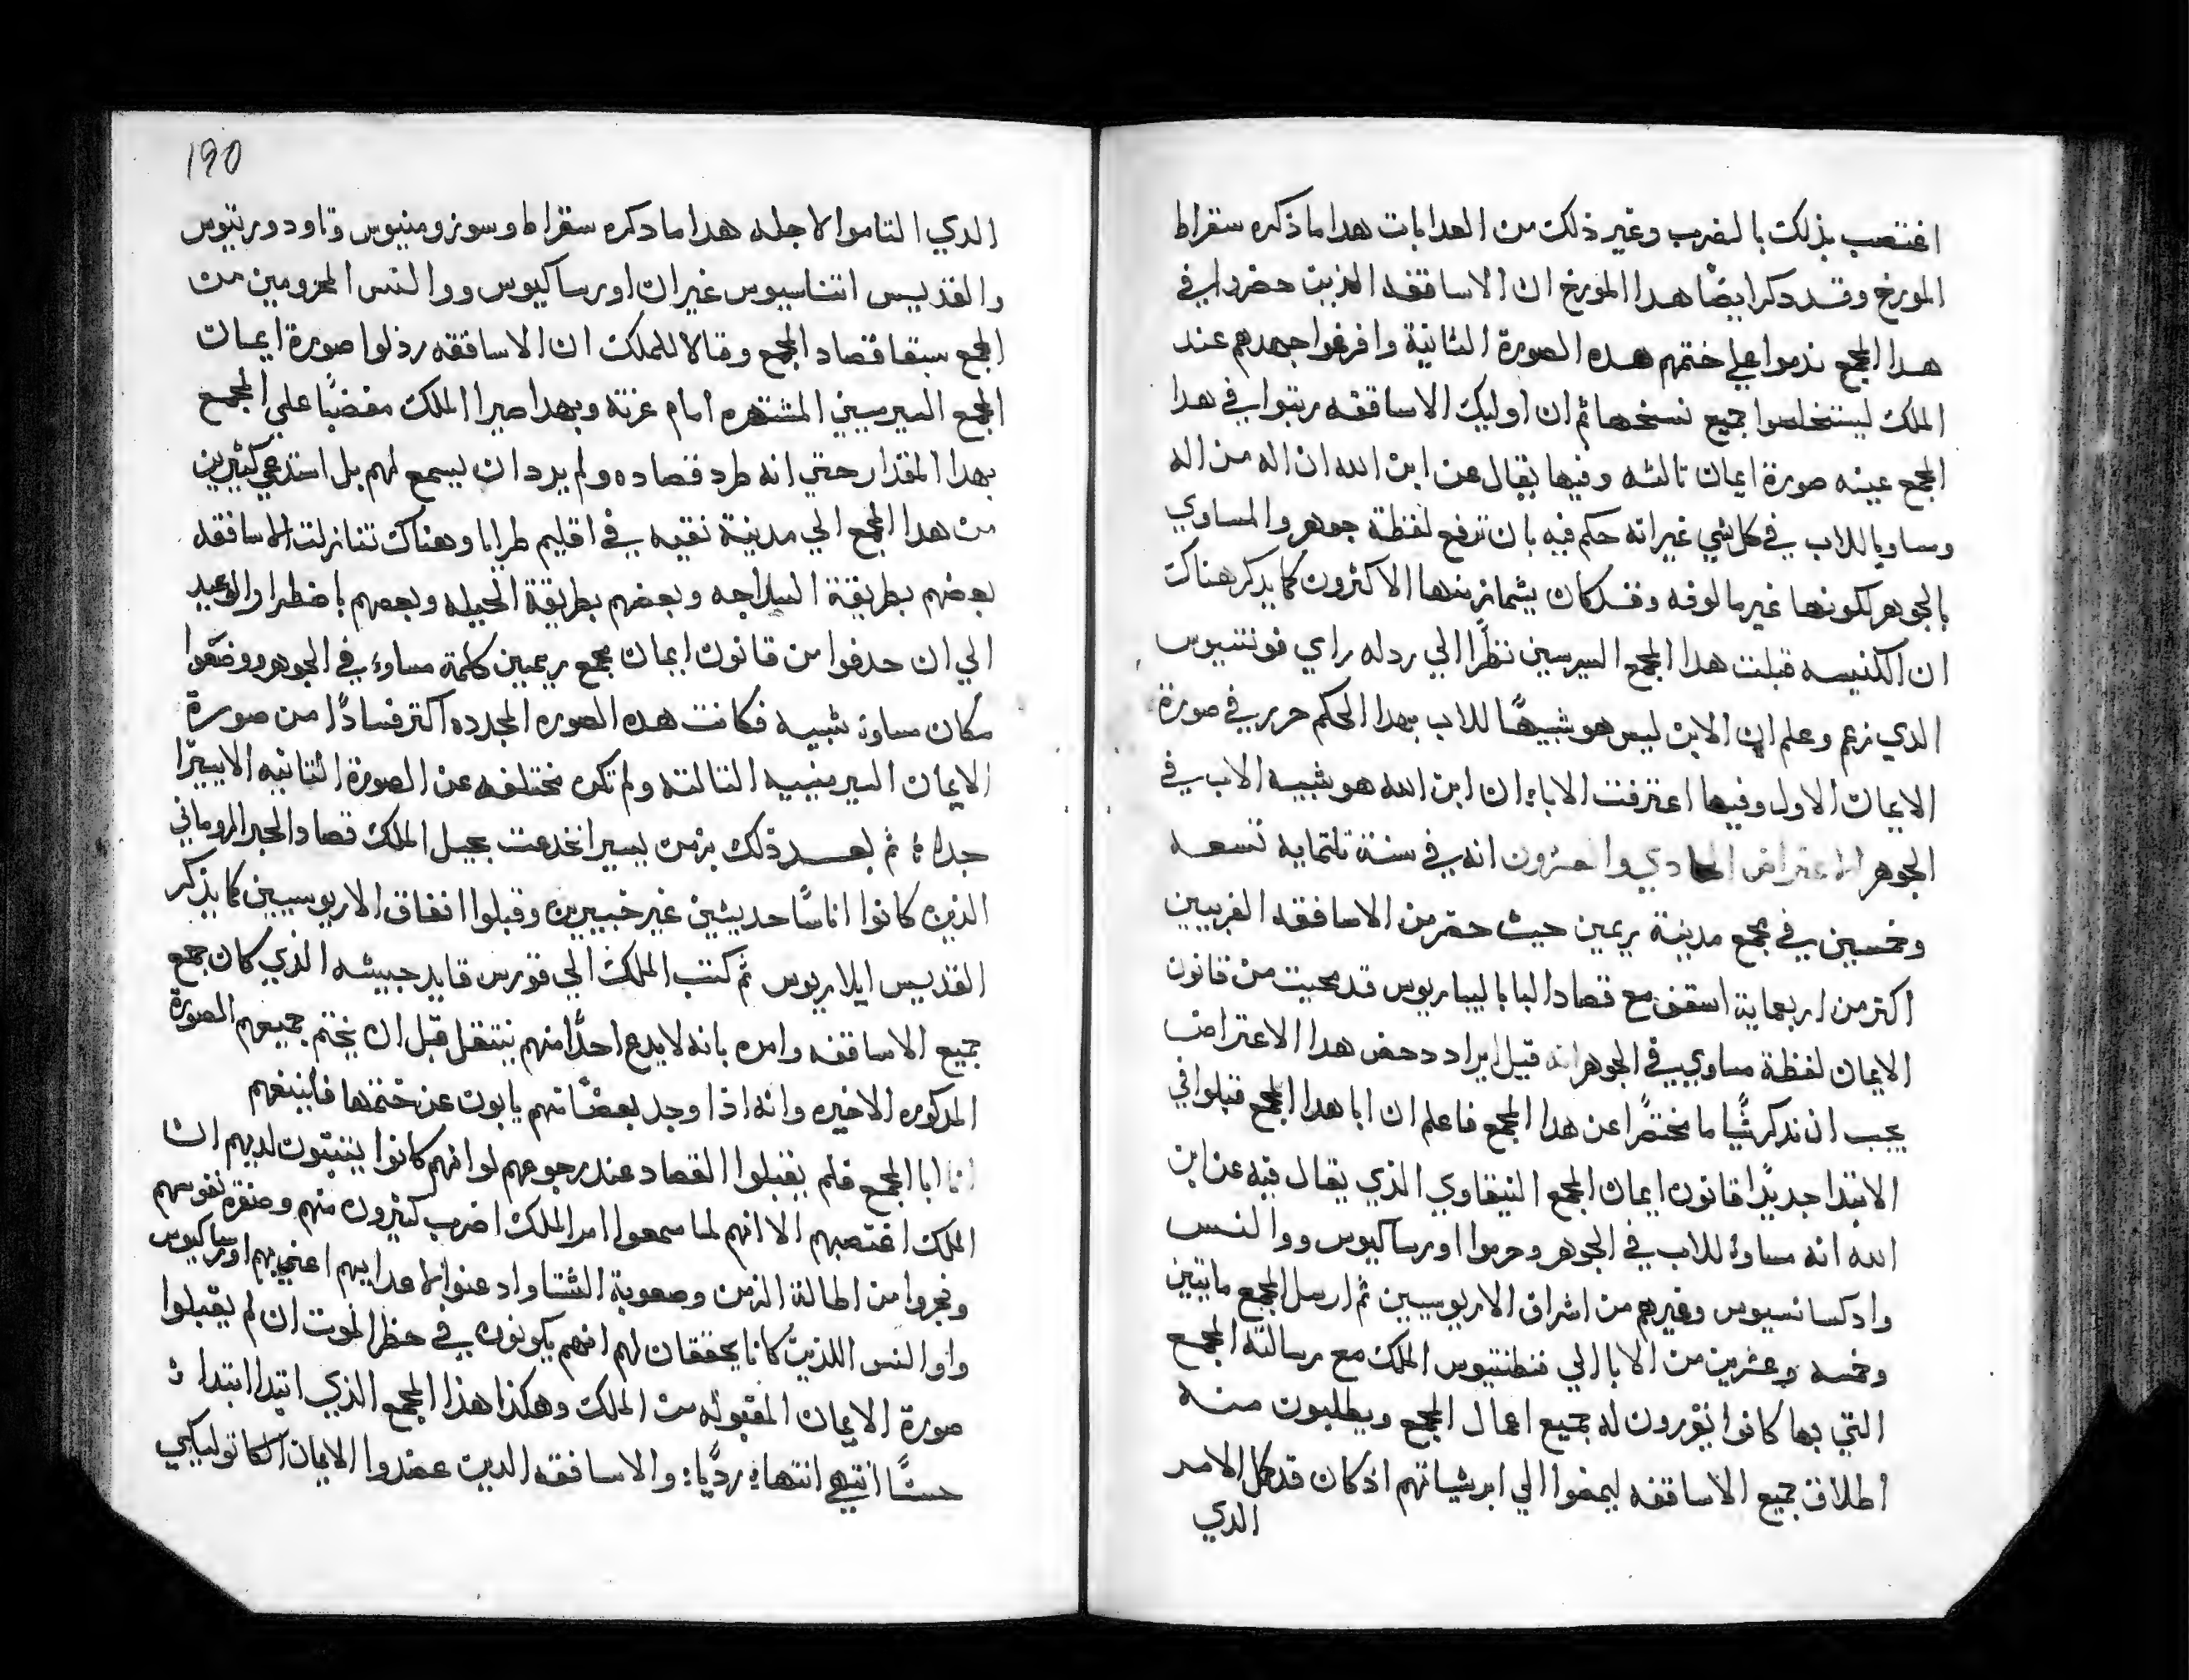 اغتصب بذلك بالضرب وغير ذلك من العدابات هدا ما ذكره سقراط
المورخ وقد دكر ايضًا هدا المورخ ان الاساقفه الذين حضروا في
هدا المجمع ندموا علي ختمهم هده الصورة الثانية وافرغوا جهدهم عند
الملك ليستخلصوا جميع نسخها ثم ان اوليك الاساقفه رتبوا في هدا
المجمع عينه صورة ايمان تالثه وفيها يقال عن ابن الله ان اله من اله
ومساويا للاب في كل شي غير انه حكم فيه بان ترفع لفظة جوهر والمساوي
بالجوهر لكونها غير مالوفه وقد كان يشمازمنها الاكثرون كما يدكر هناك
ان الكنيسه قبلت هدا المجمع السرمين نظرًا الي ردله راي فوتنيوس
الدي زعم وعلم ان الابن ليس هو شبيهًا للاب بهدا الحكم حرر في صورة
الايمان الاول وفيها اعترفت الاباء ان ابن الله هو شبيه الاب في
الجوهر الاعتراض الحادي والعشرون انه في سنة تلتمايه تسعه
وخمسين في مجمع مدينة ريمين حيث حضر من الاساقفه الغربيين
اكتر من اربعماية اسقف مع قصاد البابا ليباريوس قد محيت من قانون
الايمان لفظة مساوي في الجوهر انه قبل ايراد دحض هدا الاعتراض
يجب ان ندكر شيًا ما مختصرًا عن هدا المجمع فاعلم ان ابا هدا المجمع قبلوا في
الابتدا جديدًا قانون ايمان المجمع النيقاوي الذي يقال فيه عن ابن
الله انه مساوٍ للاب في الجوهر وحرموا اورساكيوس ووالنس
وادكسانسيوس وغيرهم من اشراف الاريوسيين ثم ارسل المجمع مايتين
وخمسه وعشرين من الابا الي قنطنتيوس الملك مع رسالته المجمع
التي بها كانوا يقررون له جميع اعمال المجمع ويطلبون منه
اطلاق جميع الاساقفه ليمضوا الي ابرشياتهم اذ كان قد كمل الامر
الدي
190
الدي التاموا لاجله هدا ما دكره سقراط وسوزومنيوس وتاودوريتوس
والقديس اتناسيوس غير ان اورساكيوس ووالنس المحرومين من
المجمع سبقا قصاد المجمع وقالا للملك ان الاساقفه رذلوا صورة ايمان
المجمع السيرميين المشتهره امام عزته وبهدا صيرا الملك مغضبًا علي المجمع
بهدا المقدار حتي انه طرد قصاده ولم يرد ان يسمع لهم بل استدعي كثيرين
من هدا المجمع الي مدينة نقيه في اقليم طرابا وهناك تنازلت الاساقفه
بعضهم بطريقة السداجه وبعضهم بطريقة الحيله وبعضهم باضطرار الوعيد
الي ان حدفوا من قانون ايمان مجمع ريميين كلمة مساوٍ في الجوهر ووضعوا
مكان مساوٍ شبيه فكانت هده الصوره المجدده اكتر فسادًا من صورة
الايمان السيرمنيه التالته ولم تكن مختلفه عن الصورة التانيه الا يسيرًا
جدا ثم بعد ذلك بزمن يسير انخدعت بحيل الملك قصاد الحبر الروماني
الذين كانوا اناسًا حديثين غير خبيرين وقبلوا انفاق الاريوسيين كما يذكر
القديس ايلاريوس ثم كتب الملك الي قورس قايد جيشه الذي كان جمع
جميع الاساقفه وامره بانه لا يدع احدًا منهم ينتقل قبل ان يختم جميعهم الصورة
المدكوره الاخيره وانه اذا وجد بعضًا منهم يابون عن ختمها فلينفهم
اما ابا المجمع فلم يقبلوا القصاد عند رجوعهم لو انهم كانوا يثبتون لديهم ان
الملك اغتصبهم الا انهم لما سمعوا امر الملك اضرب كثيرون منهم وصغرة نفوسهم
وضجروا من اطالة الزمن وصعوبة الشتا وادعنوا لاعدايهم اعني بهم اورساكيوس
ووالنس اللذين كانا يحققان لهم انهم يكونون في خطر الموت ان لم يقبلوا
صورة الايمان المقبوله من الملك وهكذا هذا المجمع الذي ابتدا ابتداءً
حسنًا انتهي انتهاءً رديًا: والاساقفه الدين عضدوا الايمان الكاتوليكي